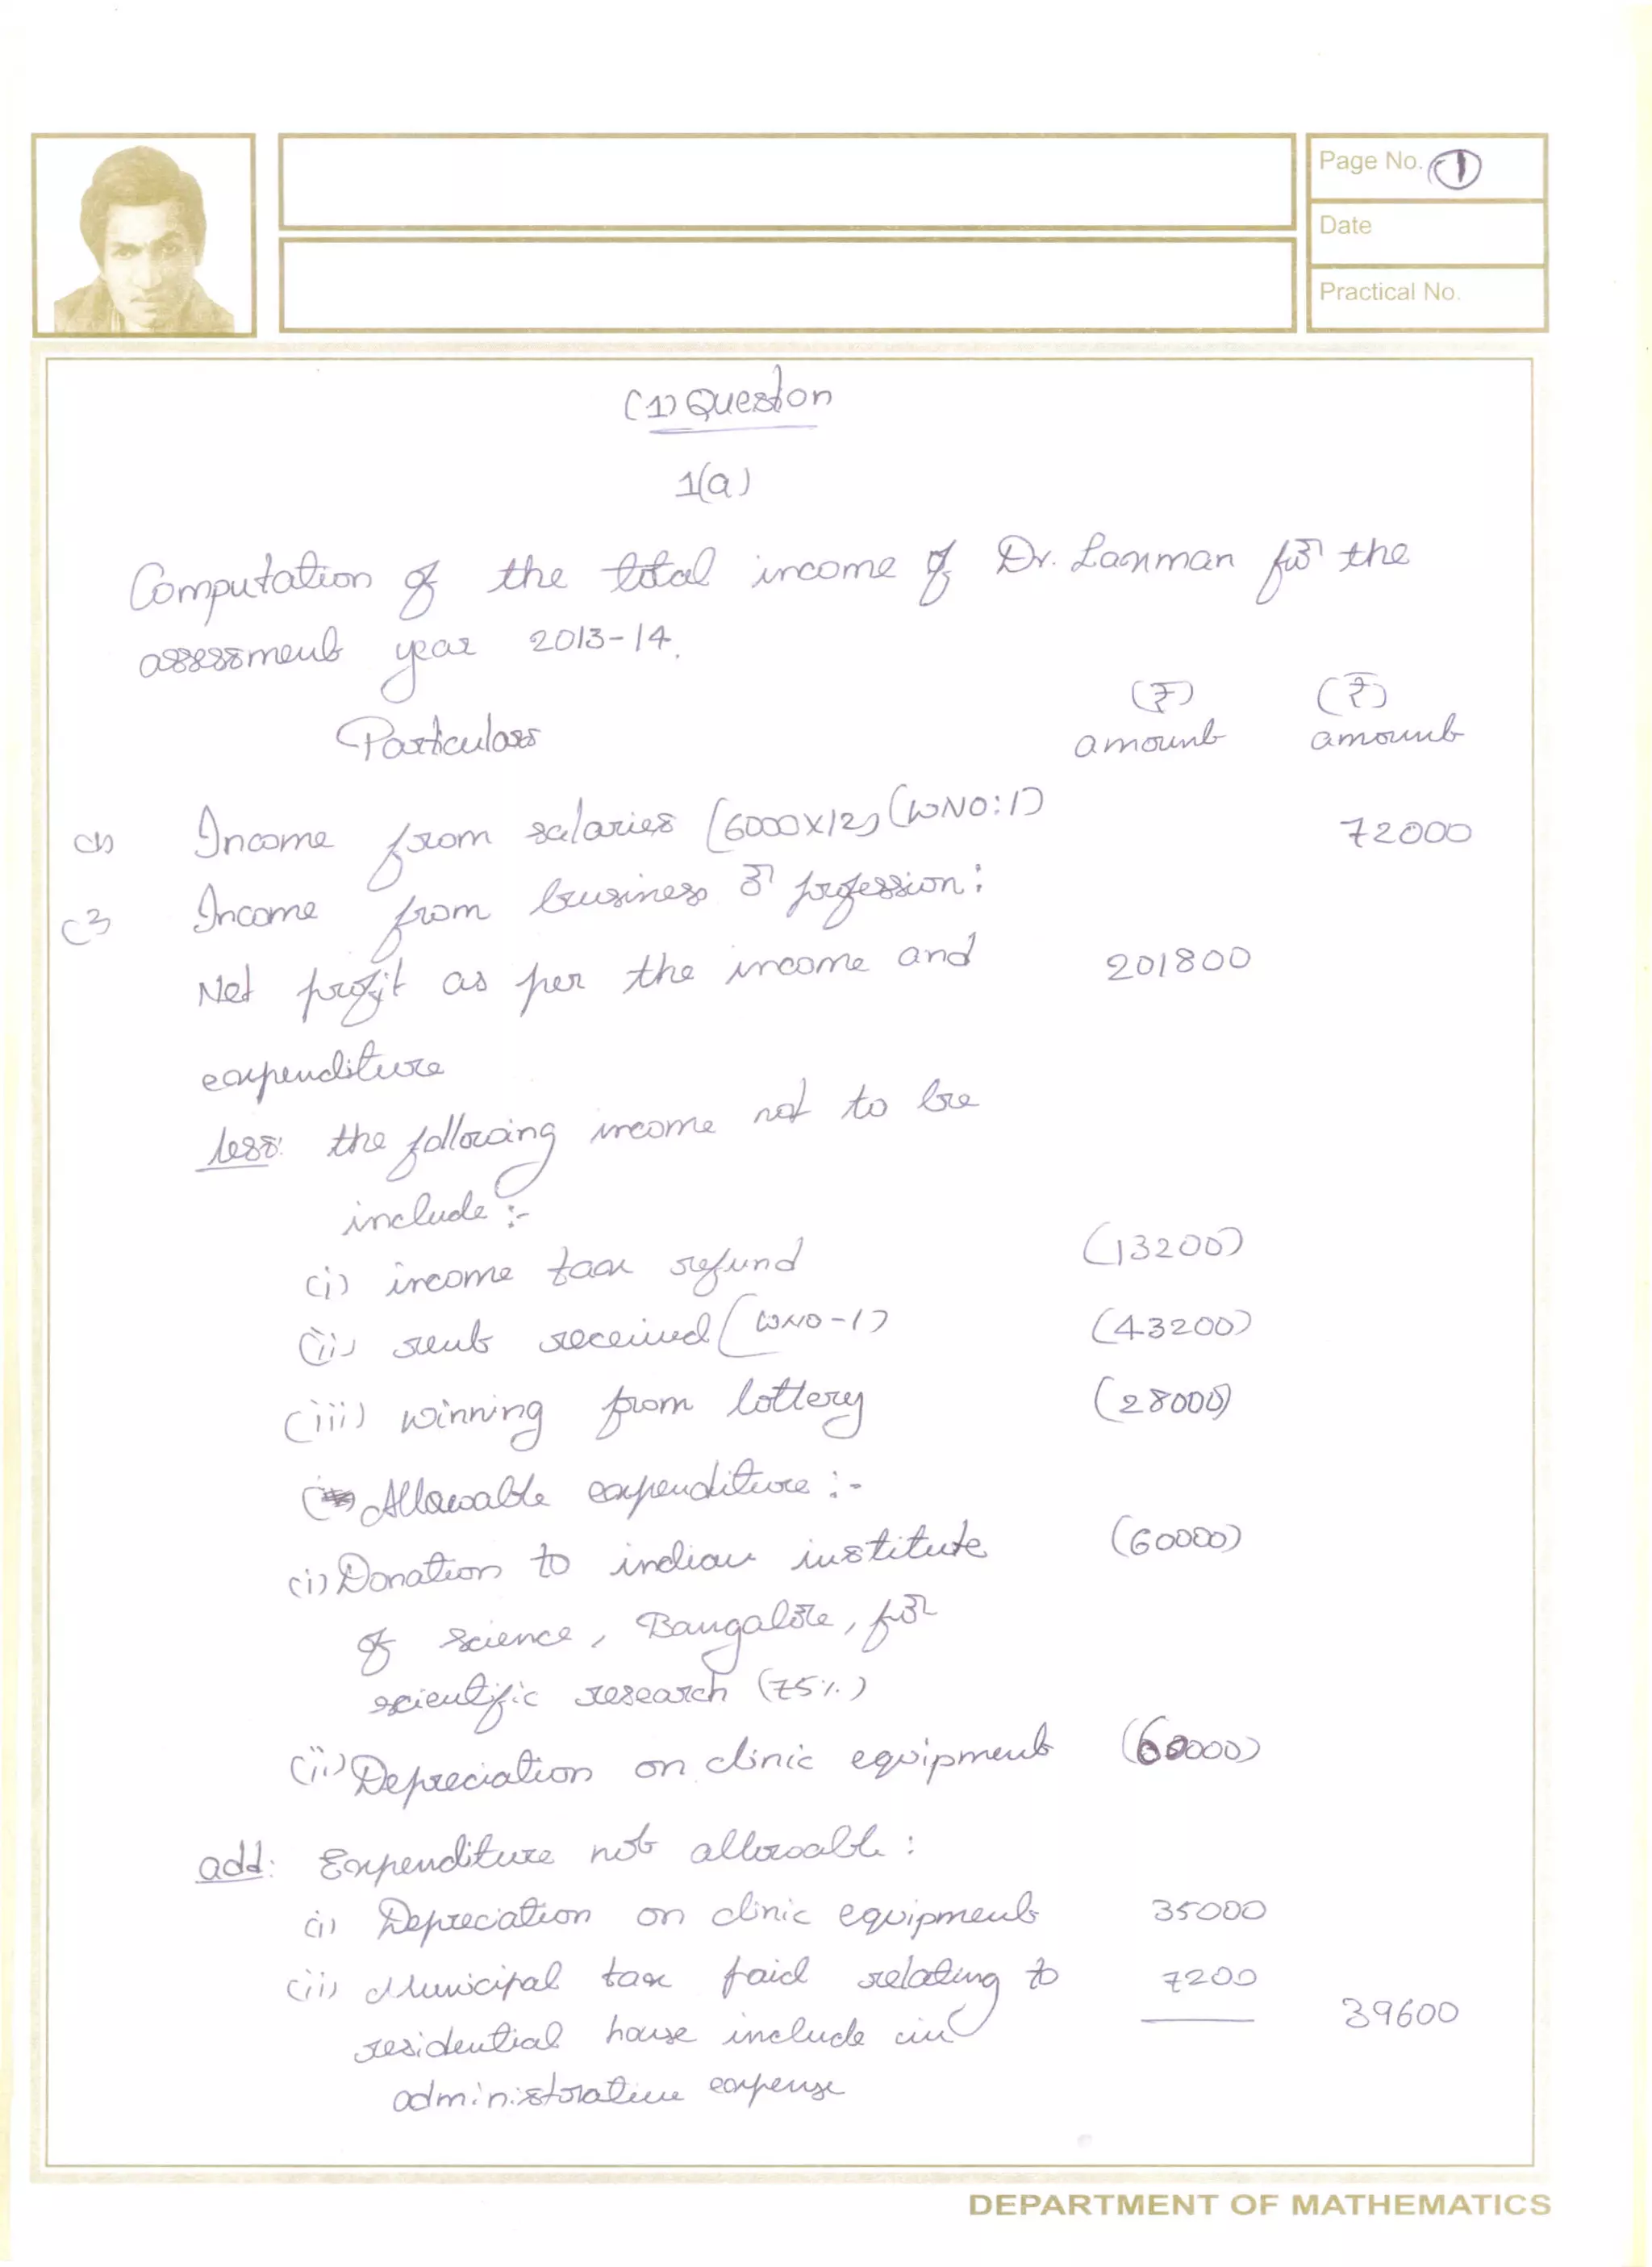 Page No. 1
Date
Practical No.
(1) Question
1(a)
Computation of the total income of Dr. Laxman for the
assessment year 2013-14.
(₹) (₹)
Particulars amount amount
(1) Income from salaries (6000X12) (WNO:1) 72000
(2 Income from business or profession:
Net profit as per the income and 201800
expenditure
less: the following income not to be
include :-
(i) income tax refund (13200)
(ii) rent received (WNO-1) (43200)
(iii) winning from lottery (28000)
Allowable expenditure :-
(i) Donation to indian institute (60000)
of science, Bangalore, for
scientific research (75%)
(ii) Depreciation on clinic equipment (60000)
add: Expenditure not allowable :
(i) Depreciation on clinic equipment 35000
(ii) Municipal tax paid relating to 7200
residential house include in 39600
administrative expense
DEPARTMENT OF MATHEMATICS